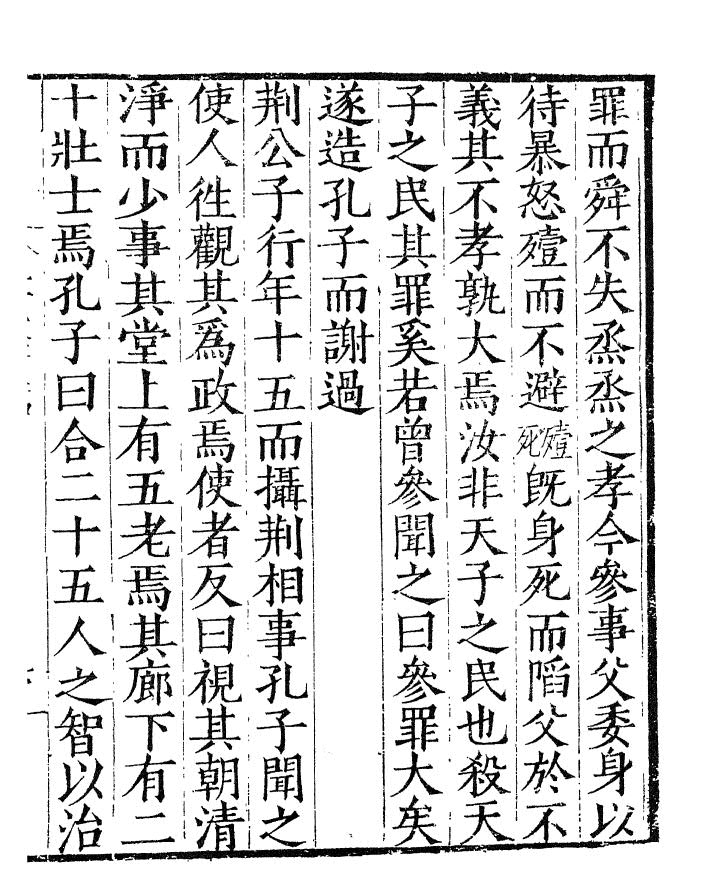 罪而舜不失烝烝之孝今參事父委身以
待暴怒殪而不避殪死既身死而陷父於不
義其不孝孰大焉汝非天子之民也殺天
子之民其罪奚若曾參聞之曰參罪大矣
遂造孔子而謝過
荆公子行年十五而攝荆相事孔子聞之
使人徃觀其爲政焉使者反曰視其朝清
淨而少事其堂上有五老焉其廊下有二
十壯士焉孔子曰合二十五人之智以治